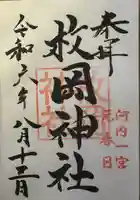 奉拝
河内一宮
元春日
枚岡神社
令和六年八月十三日